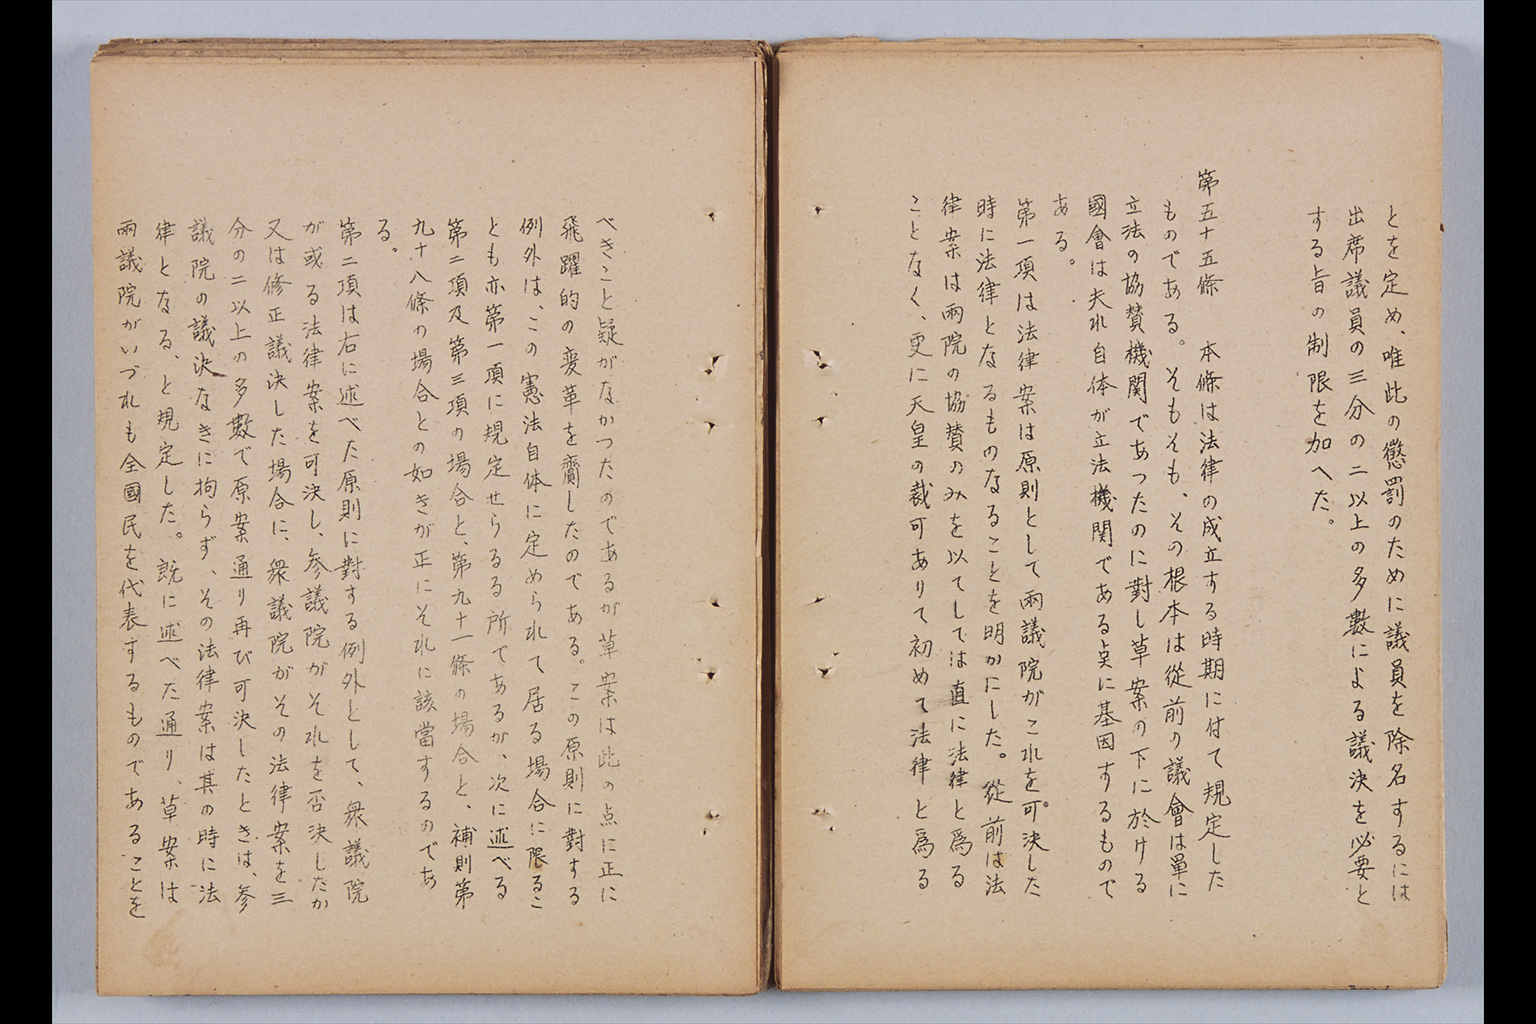 とを定め、唯此の懲罰のために議員を除名するには
出席議員の三分の二以上の多數による議決を必要と
する旨の制限を加へた。
第五十五條　本條は法律の成立する時期に付て規定した
ものである。そもそも、その根本は從前の議會は單に
立法の協賛機関であつたのに對し草案の下に於ける
國會は夫れ自体が立法機関である点に基因するもので
ある。
第一項は法律案は原則として兩議院がこれを可決した
時に法律となるものなることを明かにした。從前は法
律案は兩院の協賛のみを以てしては直に法律と爲る
ことなく、更に天皇の裁可ありて初めて法律と爲る
べきこと疑がなかつたのであるが草案は此の点に正に
飛躍的の変革を齎したのである。この原則に對する
例外は、この憲法自体に定められて居る場合に限るこ
とも亦第一項に規定せらるる所であるが、次に述べる
第二項及第三項の場合と、第九十一條の場合と、補則第
九十八條の場合との如きが正にそれに該當するのであ
る。
第二項は右に述べた原則に對する例外として、衆議院
が或る法律案を可決し、参議院がそれを否決したか
又は修正議決した場合に、衆議院がその法律案を三
分の二以上の多數で原案通り再び可決したときは、参
議院の議決なきに拘らず、その法律案は其の時に法
律となる、と規定した。既に述べた通り、草案は
兩議院がいづれも全國民を代表するものであることを